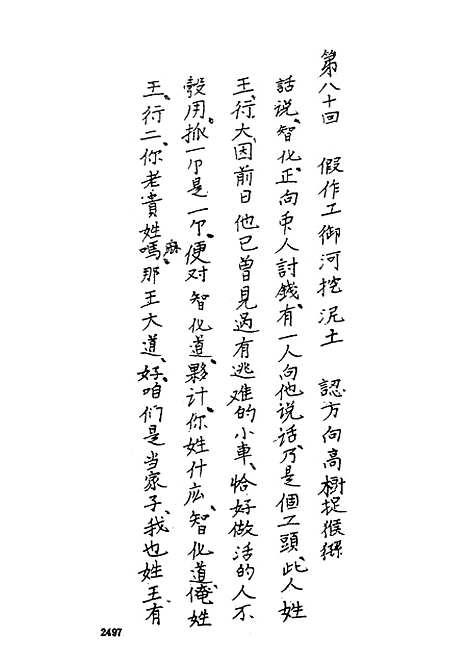 第八十回　假作工御河挖泥土　認方向高樹捉猴猻
話说、智化正向帀人討錢、有一人向他说话、乃是個工頭、此人姓
王、行大、因前日他已曾見過有逃难的小車、恰好做活的人不
彀用、抓一个是一个、便对智化道、夥计、你姓什庅、智化道、俺姓
王、行二、你老貴姓嗎、那王大道、好、咱们是当家子、我也姓王、有
麻
2497